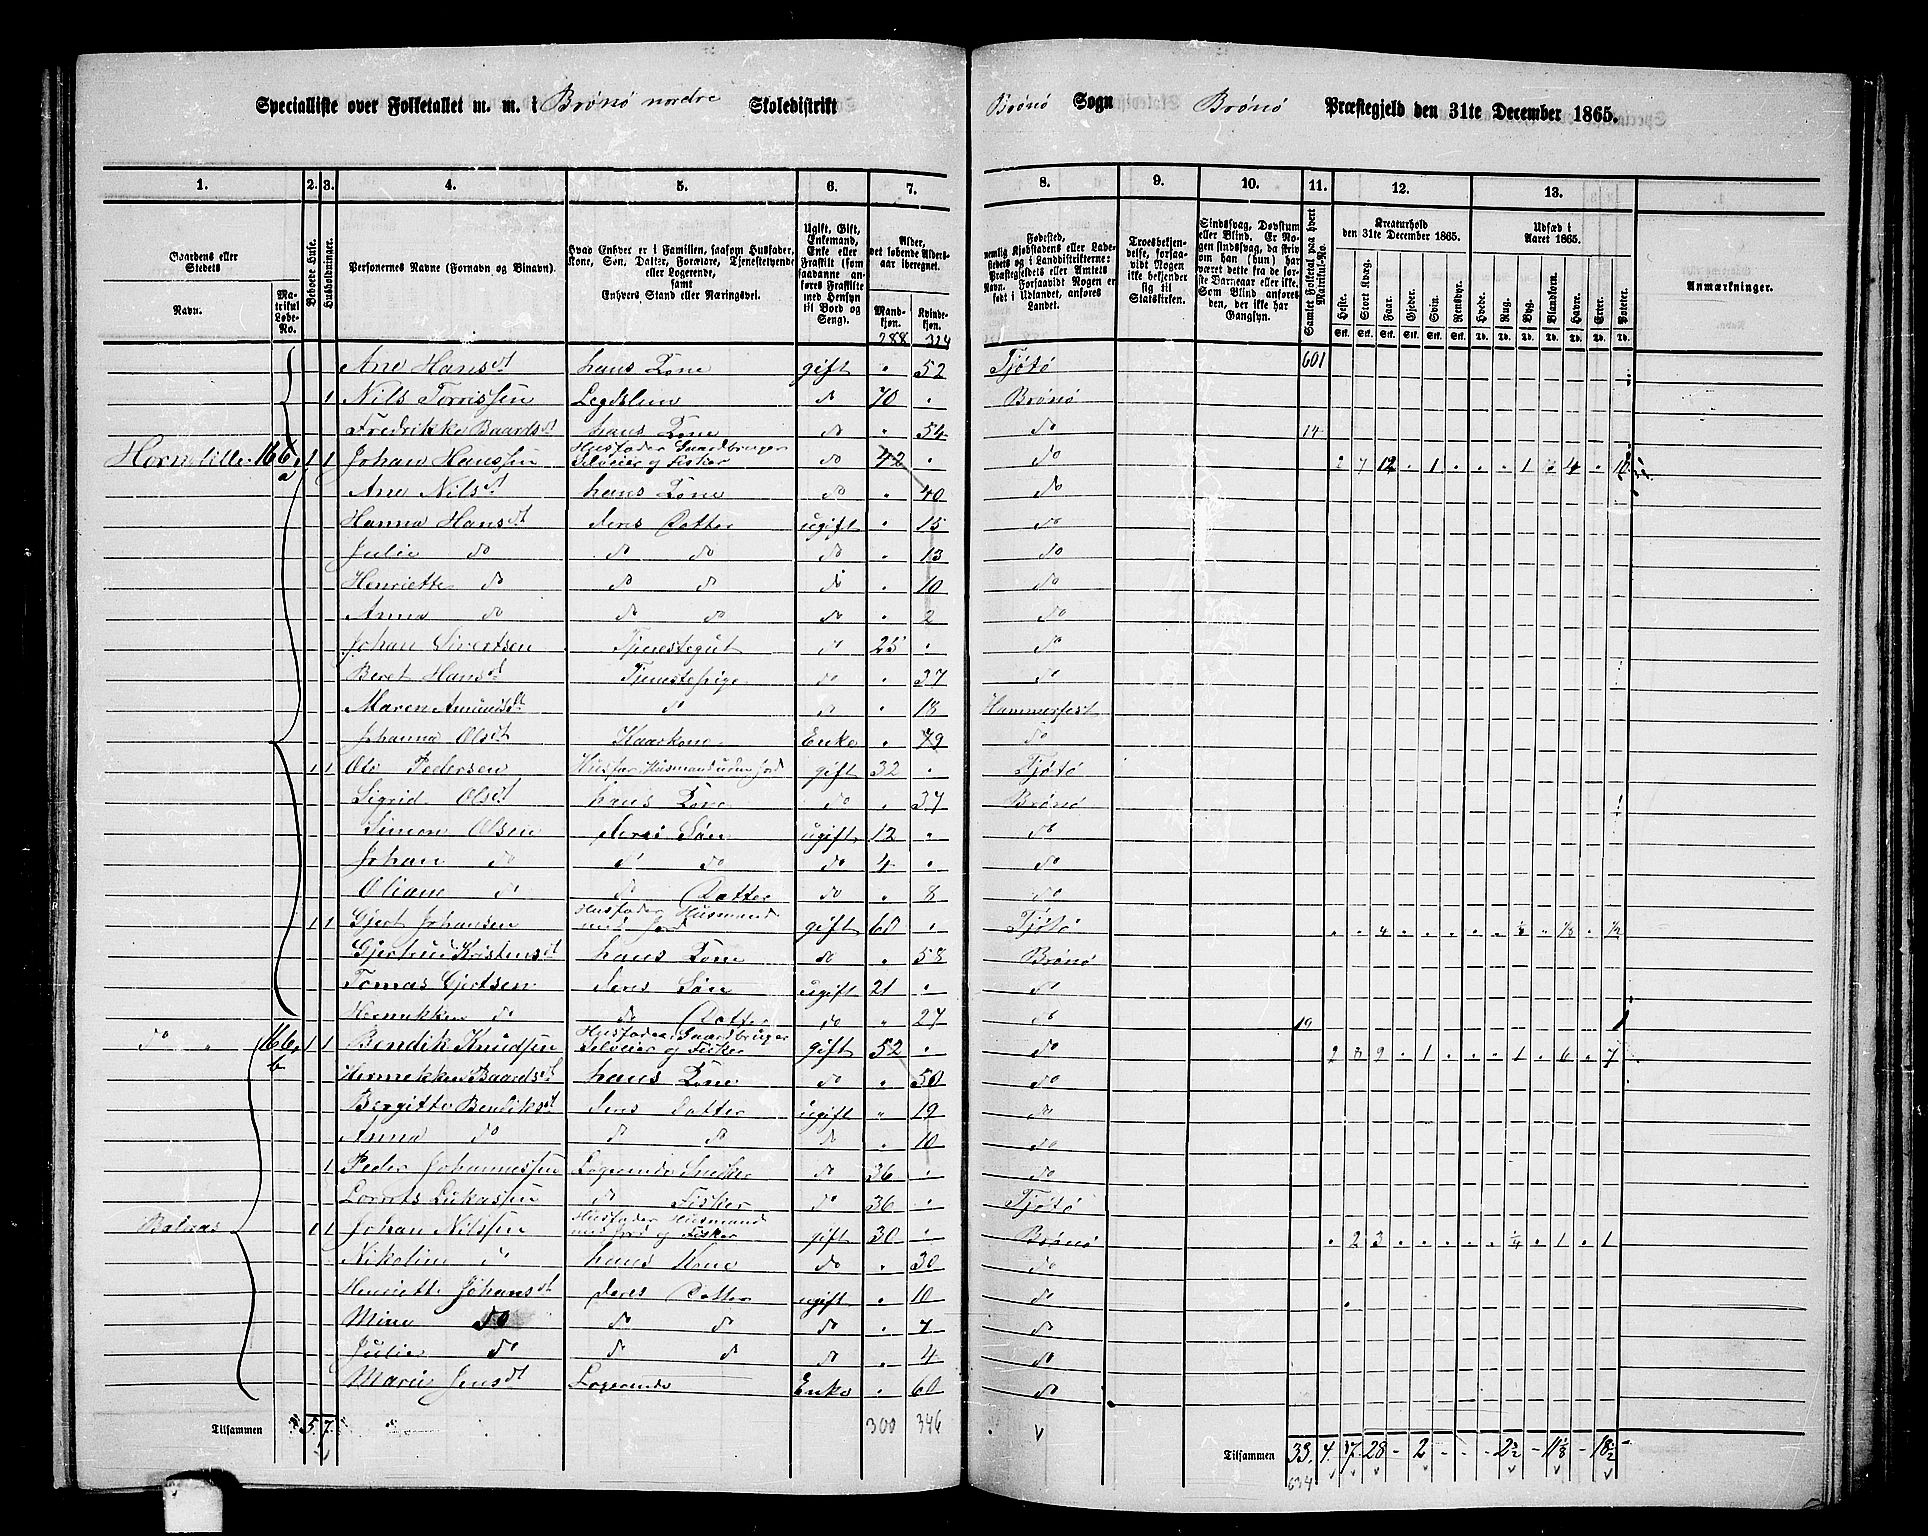 Specialliste over Folketallet m. m. i Brönö nordre Skoledistrikt Brönö Sogn Brönö Præstegjeld den 31te December 1865.
1. 2. 3. 4. 5. 6. 7. 8. 9. 10. 11. 12. 13.
Gaardens eller Stedets
Navn.
Matrikul Løbe-No.
Beboede Huse.
Husholdninger.
Personernes Navne (Fornavn og Binavn).
Hvad Enhver er i Familien, saasom Husfader, Kone, Søn, Datter, Forældre, Tjenestetyende eller Logerende, samt Enhvers Stand eller Næringsvei.
Ugift, Gift, Enkemand, Enke eller Fraskilt (som saadanne anføres Fraskilte med Hensyn til Bord og Seng).
Alder, det løbende Alders-aar iberegnet.
Mandkjøn. Kvindekjøn.
288 324
Fødested,
nemlig Kjøbstadens eller Ladestedets og i Landdistrikterne: Præstegjeldets eller Amtets Navn. Forsaavidt Nogen er født i Udlandet, anføres Landet.
Troesbekjendelse, forsaavidt Nogen ikke bekjender sig til Statskirken.
Sindssvag, Døvstum eller Blind. Er Nogen sindssvag, da frivin han (hun) har været dette fra de første Barneaar eller ikke. Som Blind anføres den, der ikke har Gangsyn.
Samlet Folketal paa hvert Matrikul-No.
Kreaturhold den 31te December 1865.
Udsæd i Aaret 1865.
Heste. Stort Kvæg. Faar. Gjeder. Svin. Rensdyr. Hvede. Rug. Byg. Blandkorn. Havre. Erter. Poteter.
Stk. Stk. Stk. Stk. Stk. Stk. Td. Td. Td. Td. Td. Td. Td.
Anmærkninger.
Ane Hansdt hans Kone gift " 52 Tjötö 601
1 Nils Torrissen Legdslem do 70 " Brönö
Fredrikke Baardsdt hans Kone do " 54 do 14
Horn lille 166 a 1 1 Johan Hanssen Husfader Gaardbruger Selveier og Fisker do 42 " do 2 7 12 " 1 " " " 1 4 "
Ane Nilsdt hans Kone do " 40 do
Hanna Hansdt deres Datter ugift " 15 do
Julie do do do do " 13 do
Henriette do do do do " 10 do
Anna do do do do " 2 do
Johan Sivertsen Tjenestegut do 25 " do
Beret Hansdt Tjenestepige do " 37 do
Maren Amundsdt do do " 18 Hammerfest
Johanna Olsdt Kaarkone Enke " 79 do
1 1 Ole Pedersen Husfar, Husmand uden Jord gift 32 " Tjötö
Sigrid Olsdt hans Kone do " 37 Brönö
Simon Olsen deres Sön ugift 12 " do
Johan do do do do 4 " do
Oliane do do Datter do " 8 do
1 1 Gjert Johansen Husfader Husmand med Jord gift 60 " Tjötö " " 4
Gjertrud Kristensdt hans Kone do " 58 Brönö
Tomas Gjertsen deres Sön ugift 21 " do
do do Datter do " 27 do 19
do " 166 b 1 1 Bendik Knudsen Husfader Gaardbruger Selveier og Fisker gift 52 " do 2 8 9 " 1 " " " 1 " 6 " 7
Hermekken Baardsdt hans Kone do " 50 do
Bergitte Bendiksdt deres Datter ugift " 19 do
Anna do do do do " 10 do
1 Peder Johannessen Logerende Snedker do 36 " do
Lornts Lukassen do Fisker do 36 " Tjötö
Balnas 1 1 Johan Nilssen Husfader Husmand med Jord og Fisker gift 30 " Brönö " 2 3 " " " " " 1/4 " 1 " 1
Nikoline " hans Kone do " 30 do
Henriette Johansdt deres Datter ugift " 10 do
Mine do do do do " 7 do
Julie do do do do " 4 do
Marie Jensdt Logerende Enke " 60 do
Tilsammen 5 7 300 346
Tilsammen 33. 4. 17 28 - 2 - - - - 11 1/8 - 18 1/2 -
634